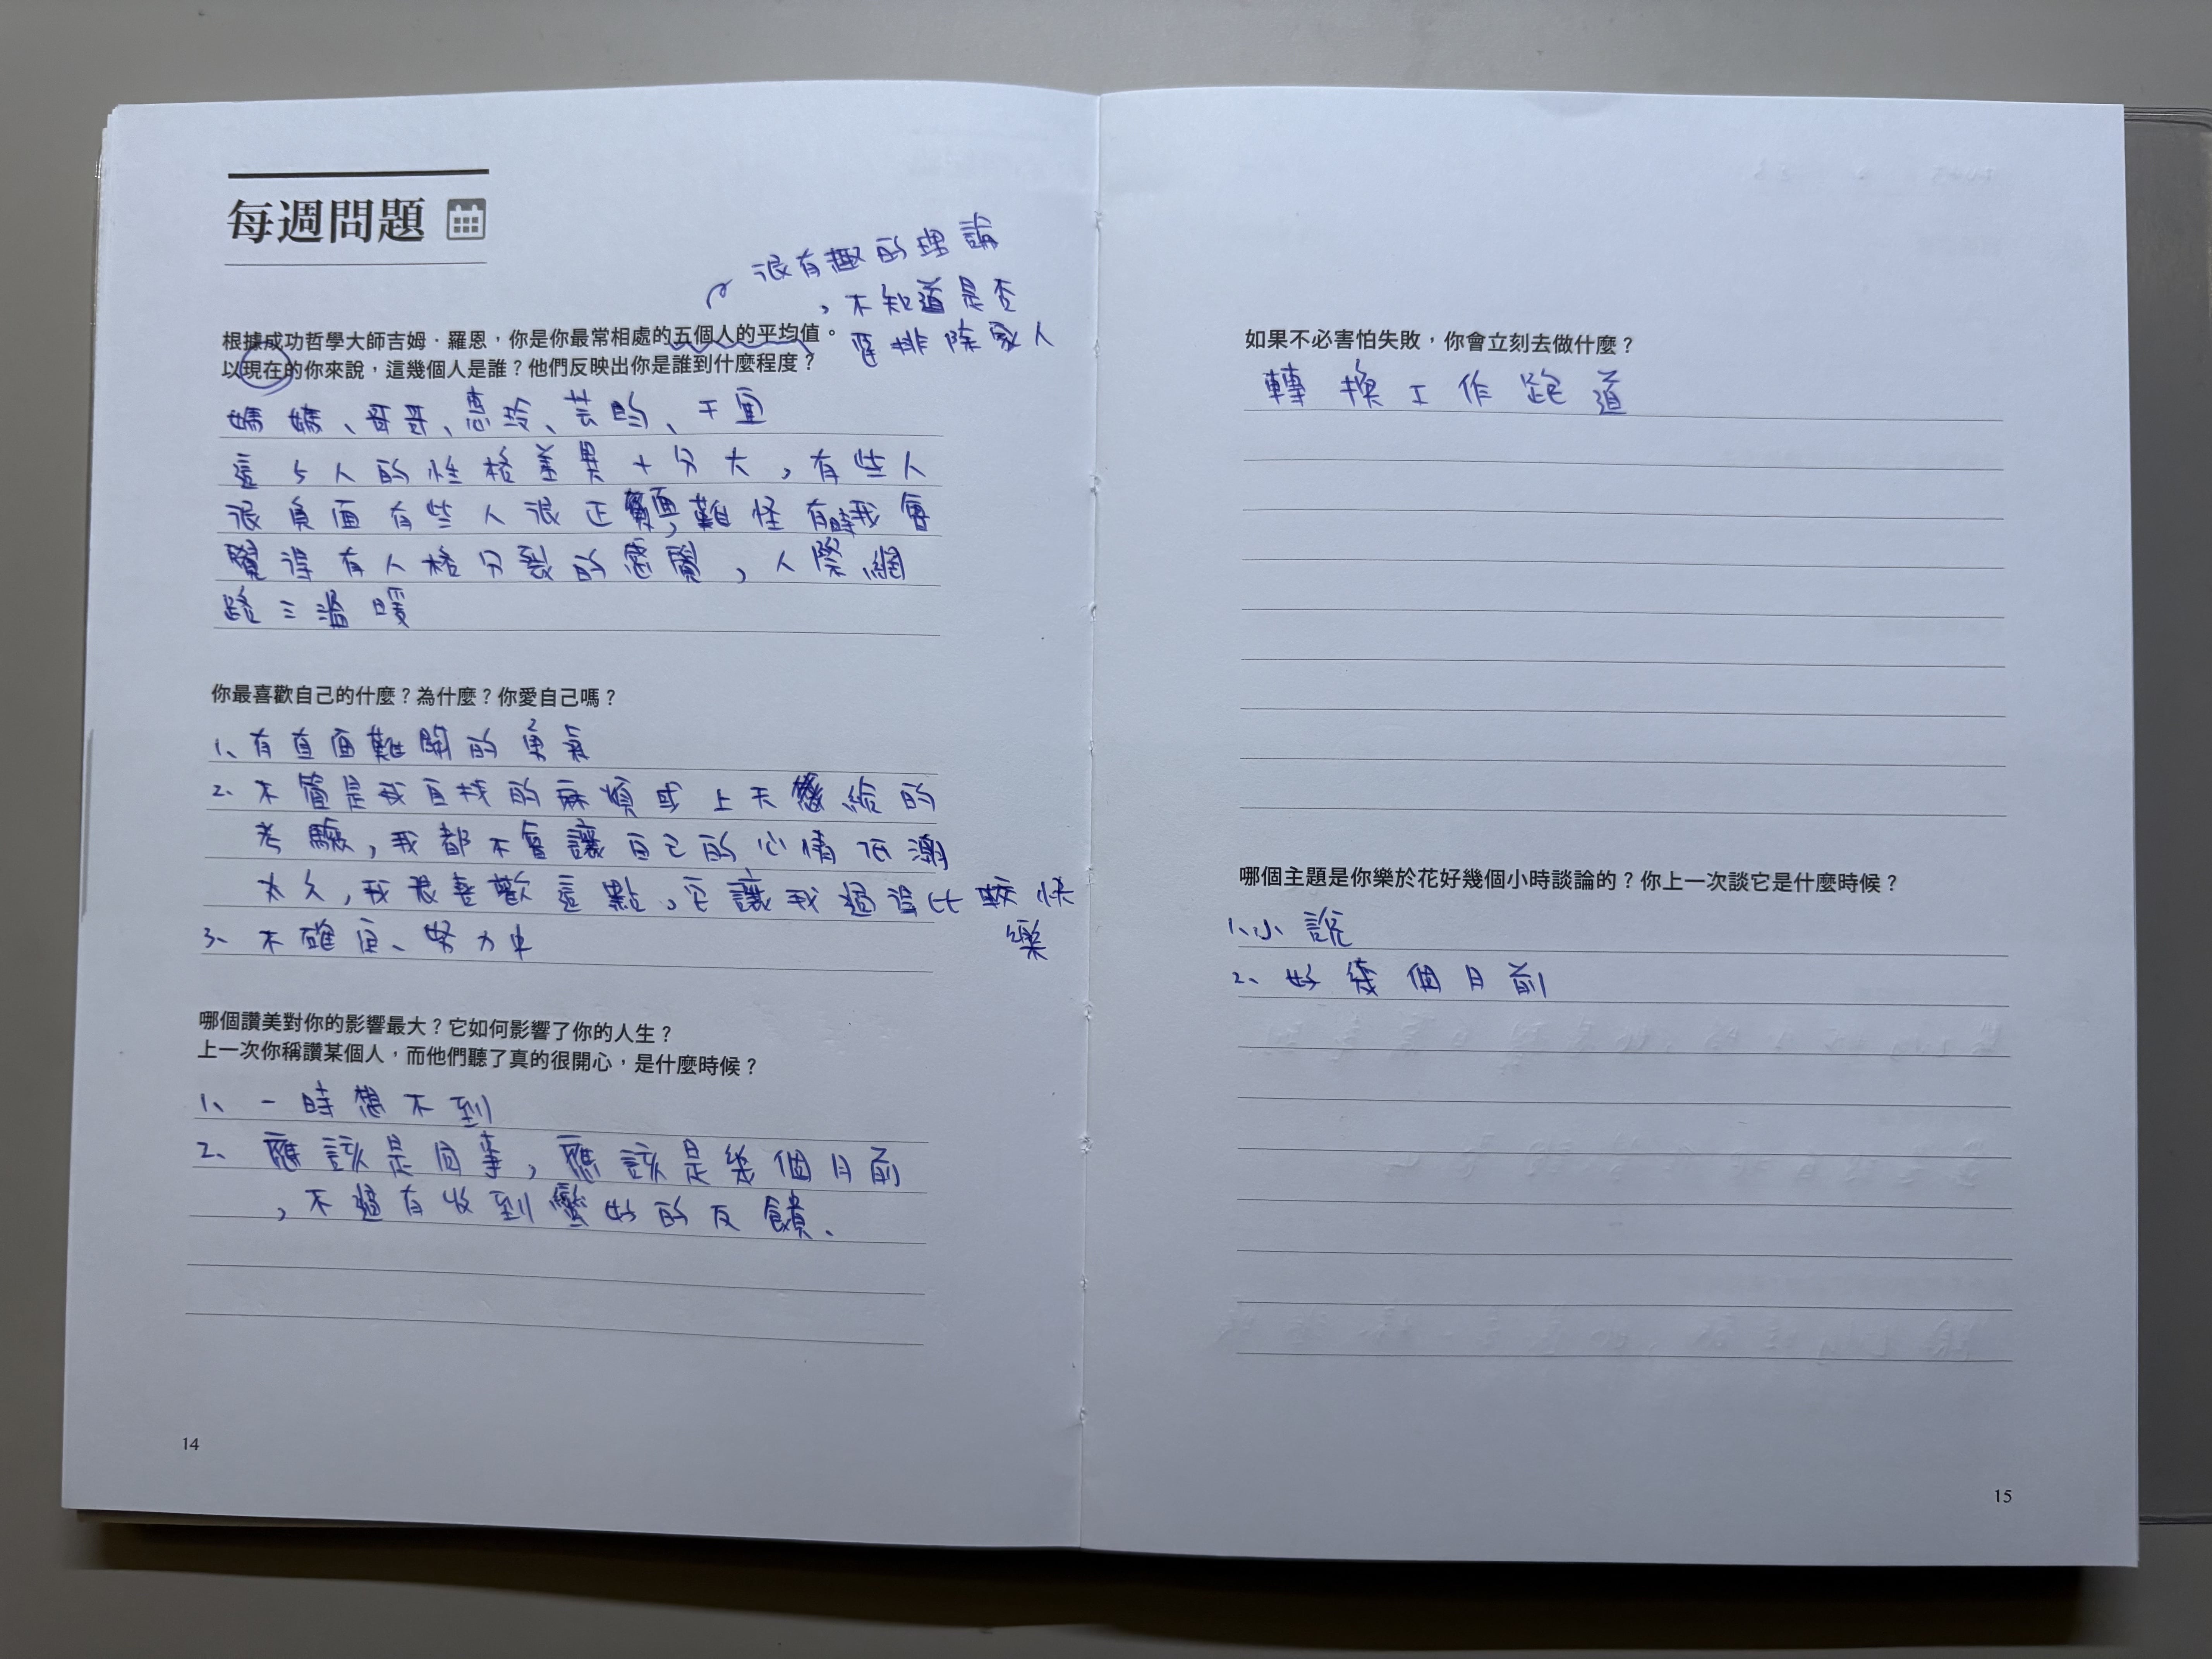 每週問題
很有趣的理論
，不知道是否
要排除家人
根據成功哲學大師吉姆．羅恩，你是你最常相處的五個人的平均值。
以現在的你來說，這幾個人是誰？他們反映出你是誰到什麼程度？
媽媽、哥哥、惠玲、芸昀、于宣
這5人的性格差異十分大，有些人
很負面有些人很正面，難怪有時我會
覺得有人格分裂的感覺，人際網
路三溫暖
你最喜歡自己的什麼？為什麼？你愛自己嗎？
1、有直面難關的勇氣
2、不管是我自找的麻煩或上天給的
考驗，我都不會讓自己的心情低潮
太久，我很喜歡這點，它讓我過得比較快
樂
3、不確定、努力中
哪個讚美對你的影響最大？它如何影響了你的人生？
上一次你稱讚某個人，而他們聽了真的很開心，是什麼時候？
1、一時想不到
2、應該是同事，應該是幾個月前
，不過有收到蠻好的反饋、
14
如果不必害怕失敗，你會立刻去做什麼？
轉換工作跑道
哪個主題是你樂於花好幾個小時談論的？你上一次談它是什麼時候？
1、小說
2、好幾個月前
15